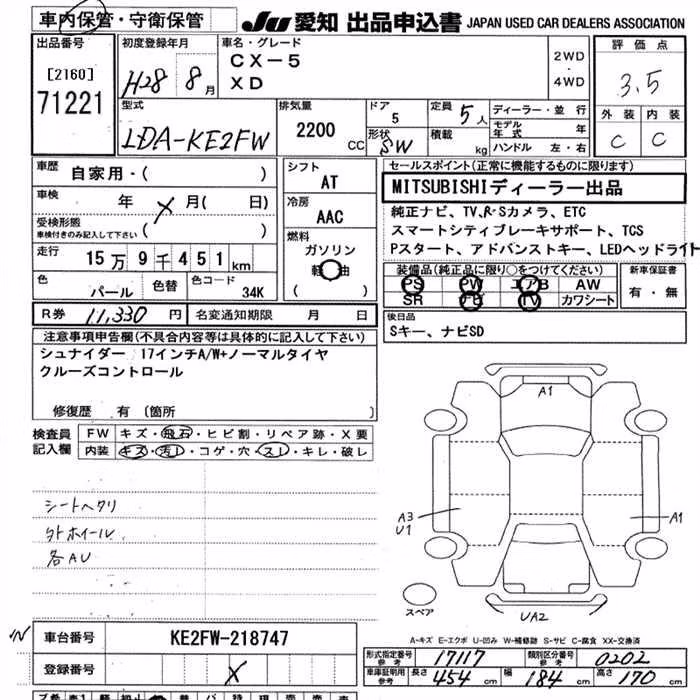 車内保管・守衛保管
JU 愛知 出品申込書 JAPAN USED CAR DEALERS ASSOCIATION
出品番号
[2160]
71221
初度登録年月
H28 8月
車名・グレード
CX-5
XD
2WD
・
4WD
評価点
3.5
外装 内装
C C
型式
LDA-KE2FW
排気量
2200 CC
ドア
5
形状
SW
定員
5人
積載
kg
ディーラー・並行
モデル年式 年
ハンドル 左・右
車歴
自家用・( )
車検
年 X 月( 日)
受検形態
車検付きのみ記入して下さい ( )
走行
15万9千451km
色
パール
色替
色コード
34K
シフト
AT
冷房
AAC
燃料
ガソリン
軽油
( )
セールスポイント(正常に機能するものに限ります)
MITSUBISHIディーラー出品
純正ナビ、TV,R-Sカメラ、ETC
スマートシティブレーキサポート、TCS
Pスタート、アドバンストキー、LEDヘッドライト
装備品(純正品に限り○をつけてください)
PS PW エアB AW
SR ナビ TV カワシート
新車保証書
有・無
後日品
Sキー、ナビSD
R券 11,330 円 名変通知期限 月 日
注意事項申告欄(不具合内容等は具体的に記入して下さい)
シュナイダー 17インチA/W+ノーマルタイヤ
クルーズコントロール
修復歴 有 〔箇所 〕
検査員記入欄
FW キズ・飛石・ヒビ割・リペア跡・X要
内装 キズ・汚レ・コゲ・穴・スレ・キレ・破レ
シートヘタリ
外ホイール
各AU
A1
A3
U1
A1
スペア
UA2
A-キズ E-エクボ U-凹み W-補修跡 S-サビ C-腐食 XX-交換済
車台番号 KE2FW-218747
登録番号 X
形式指定番号 参考 17117 類別区分番号 参考 0202
車庫証明用 参考 長さ 454 cm 幅 184 cm 高さ 170 cm